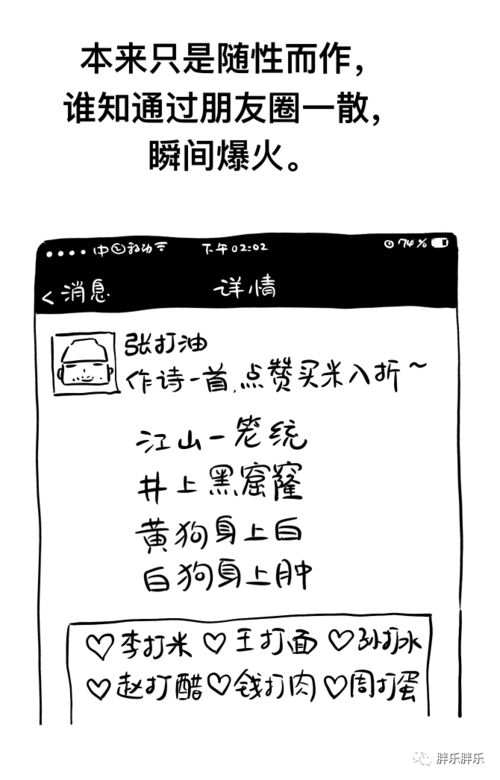 本来只是随性而作，
谁知通过朋友圈一散，
瞬间爆火。
中移动 下午02:02 74%
<消息 详情
张打油
作诗一首，点赞买米八折~
江山一笼统
井上黑窟窿
黄狗身上白
白狗身上肿
♡李打米 ♡王打面 ♡孙打水
♡赵打醋 ♡钱打肉 ♡周打蛋
胖乐胖乐